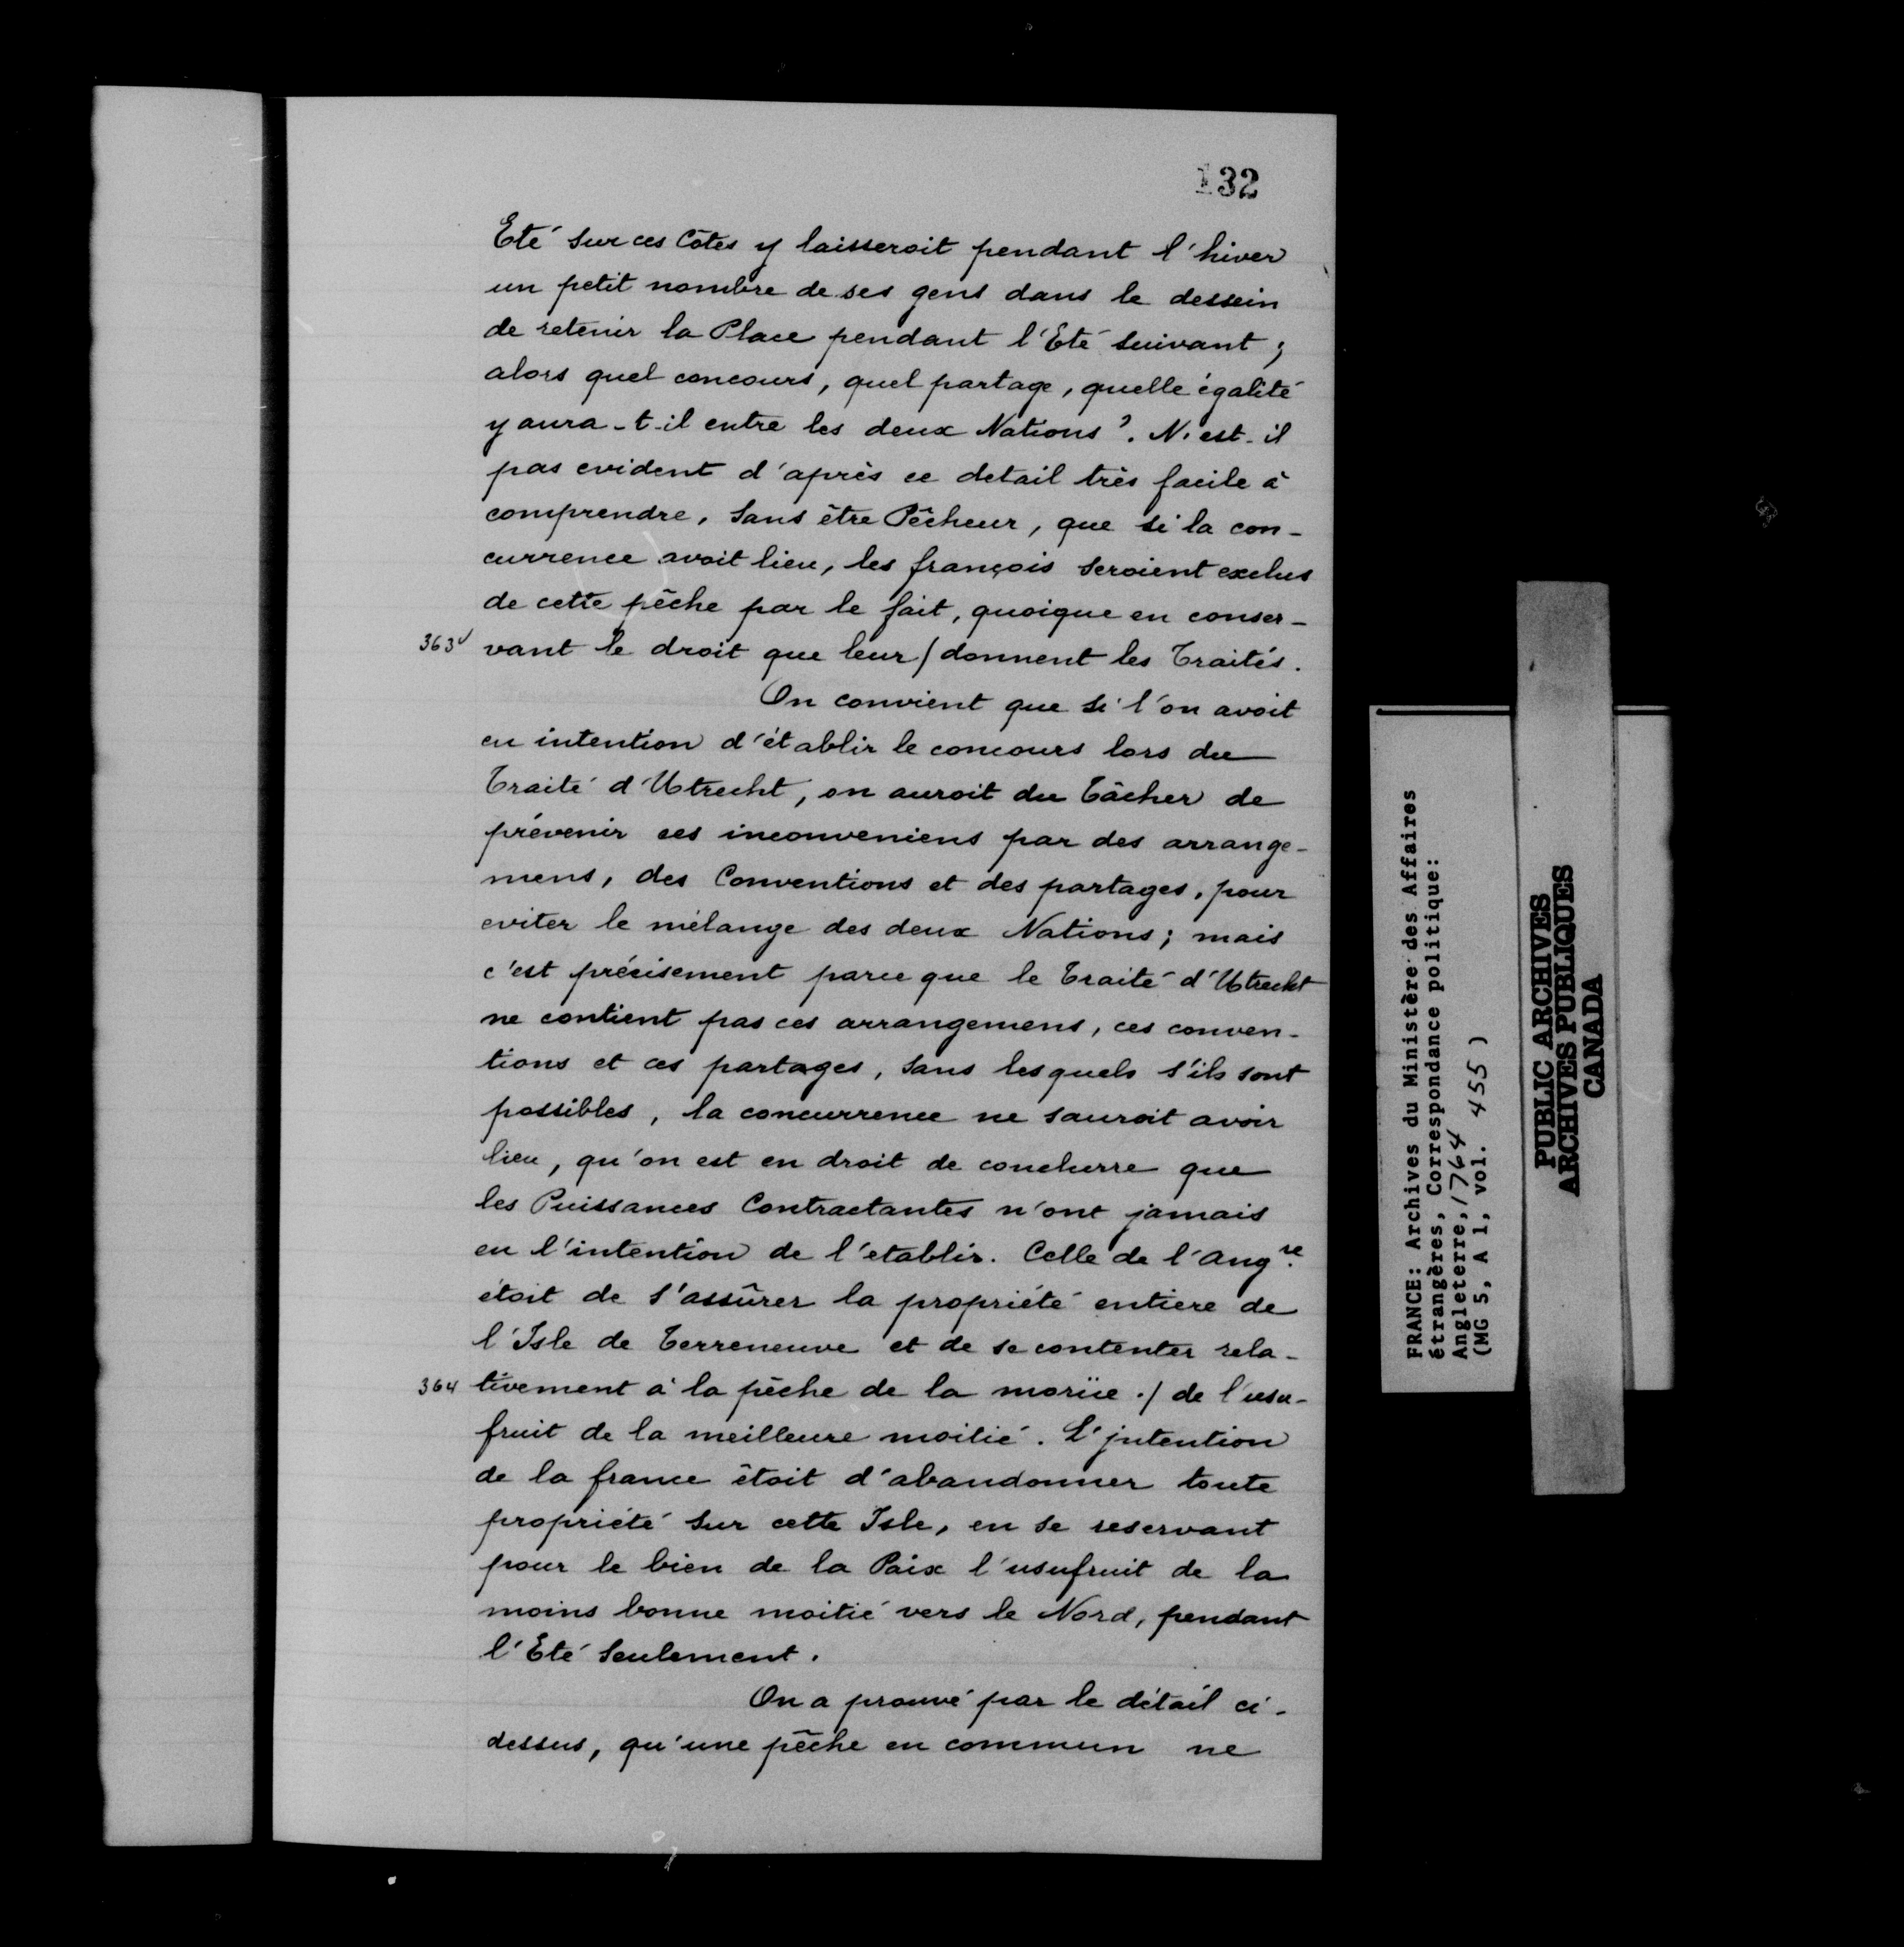 132
Eté sur ces Côtes y laisseroit pendant l'hiver
un petit nombre de ses gens dans le dessein
de retenir la Place pendant l'Eté suivant ;
alors quel concours, quel partage, quelle égalité
y aura-t-il entre les deux Nations ?. N'est-il
pas evident d'après ce detail très facile à
comprendre, sans être Pêcheur, que si la con-
currence avoit lieu, les françois seroient exclus
de cette pêche par le fait, quoique en conser-
363v vant le droit que leur / donnent les Traités.
On convient que si l'on avoit
eu intention d'établir le concours lors du
Traité d'Utrecht, on auroit du tâcher de
prévenir ces inconveniens par des arrange-
mens, des Conventions et des partages, pour
eviter le mélange des deux Nations ; mais
c'est précisement parce que le Traité d'Utrecht
ne contient pas ces arrangemens, ces conven-
tions et ces partages, sans lesquels s'ils sont
possibles, la concurrence ne sauroit avoir
lieu, qu'on est en droit de conclurre que
les Puissances Contractantes n'ont jamais
eu l'intention de l'etablir. Celle de l'Angre.
étoit de s'assûrer la propriété entiere de
l'Isle de Terreneuve et de se contenter rela-
364 tivement à la pêche de la morüe ./ de l'usu-
fruit de la meilleure moitié. L'jntention
de la france étoit d'abandonner toute
propriété sur cette Isle, en se reservant
pour le bien de la Paix l'usufruit de la
moins bonne moitié vers le Nord, pendant
l'Eté seulement.
On a prouvé par le détail ci-
dessus, qu'une pêche en commun ne
FRANCE: Archives du Ministère des Affaires
étrangères, Correspondance politique:
Angleterre, 1764
(MG 5, A 1, vol. 455)
PUBLIC ARCHIVES
ARCHIVES PUBLIQUES
CANADA